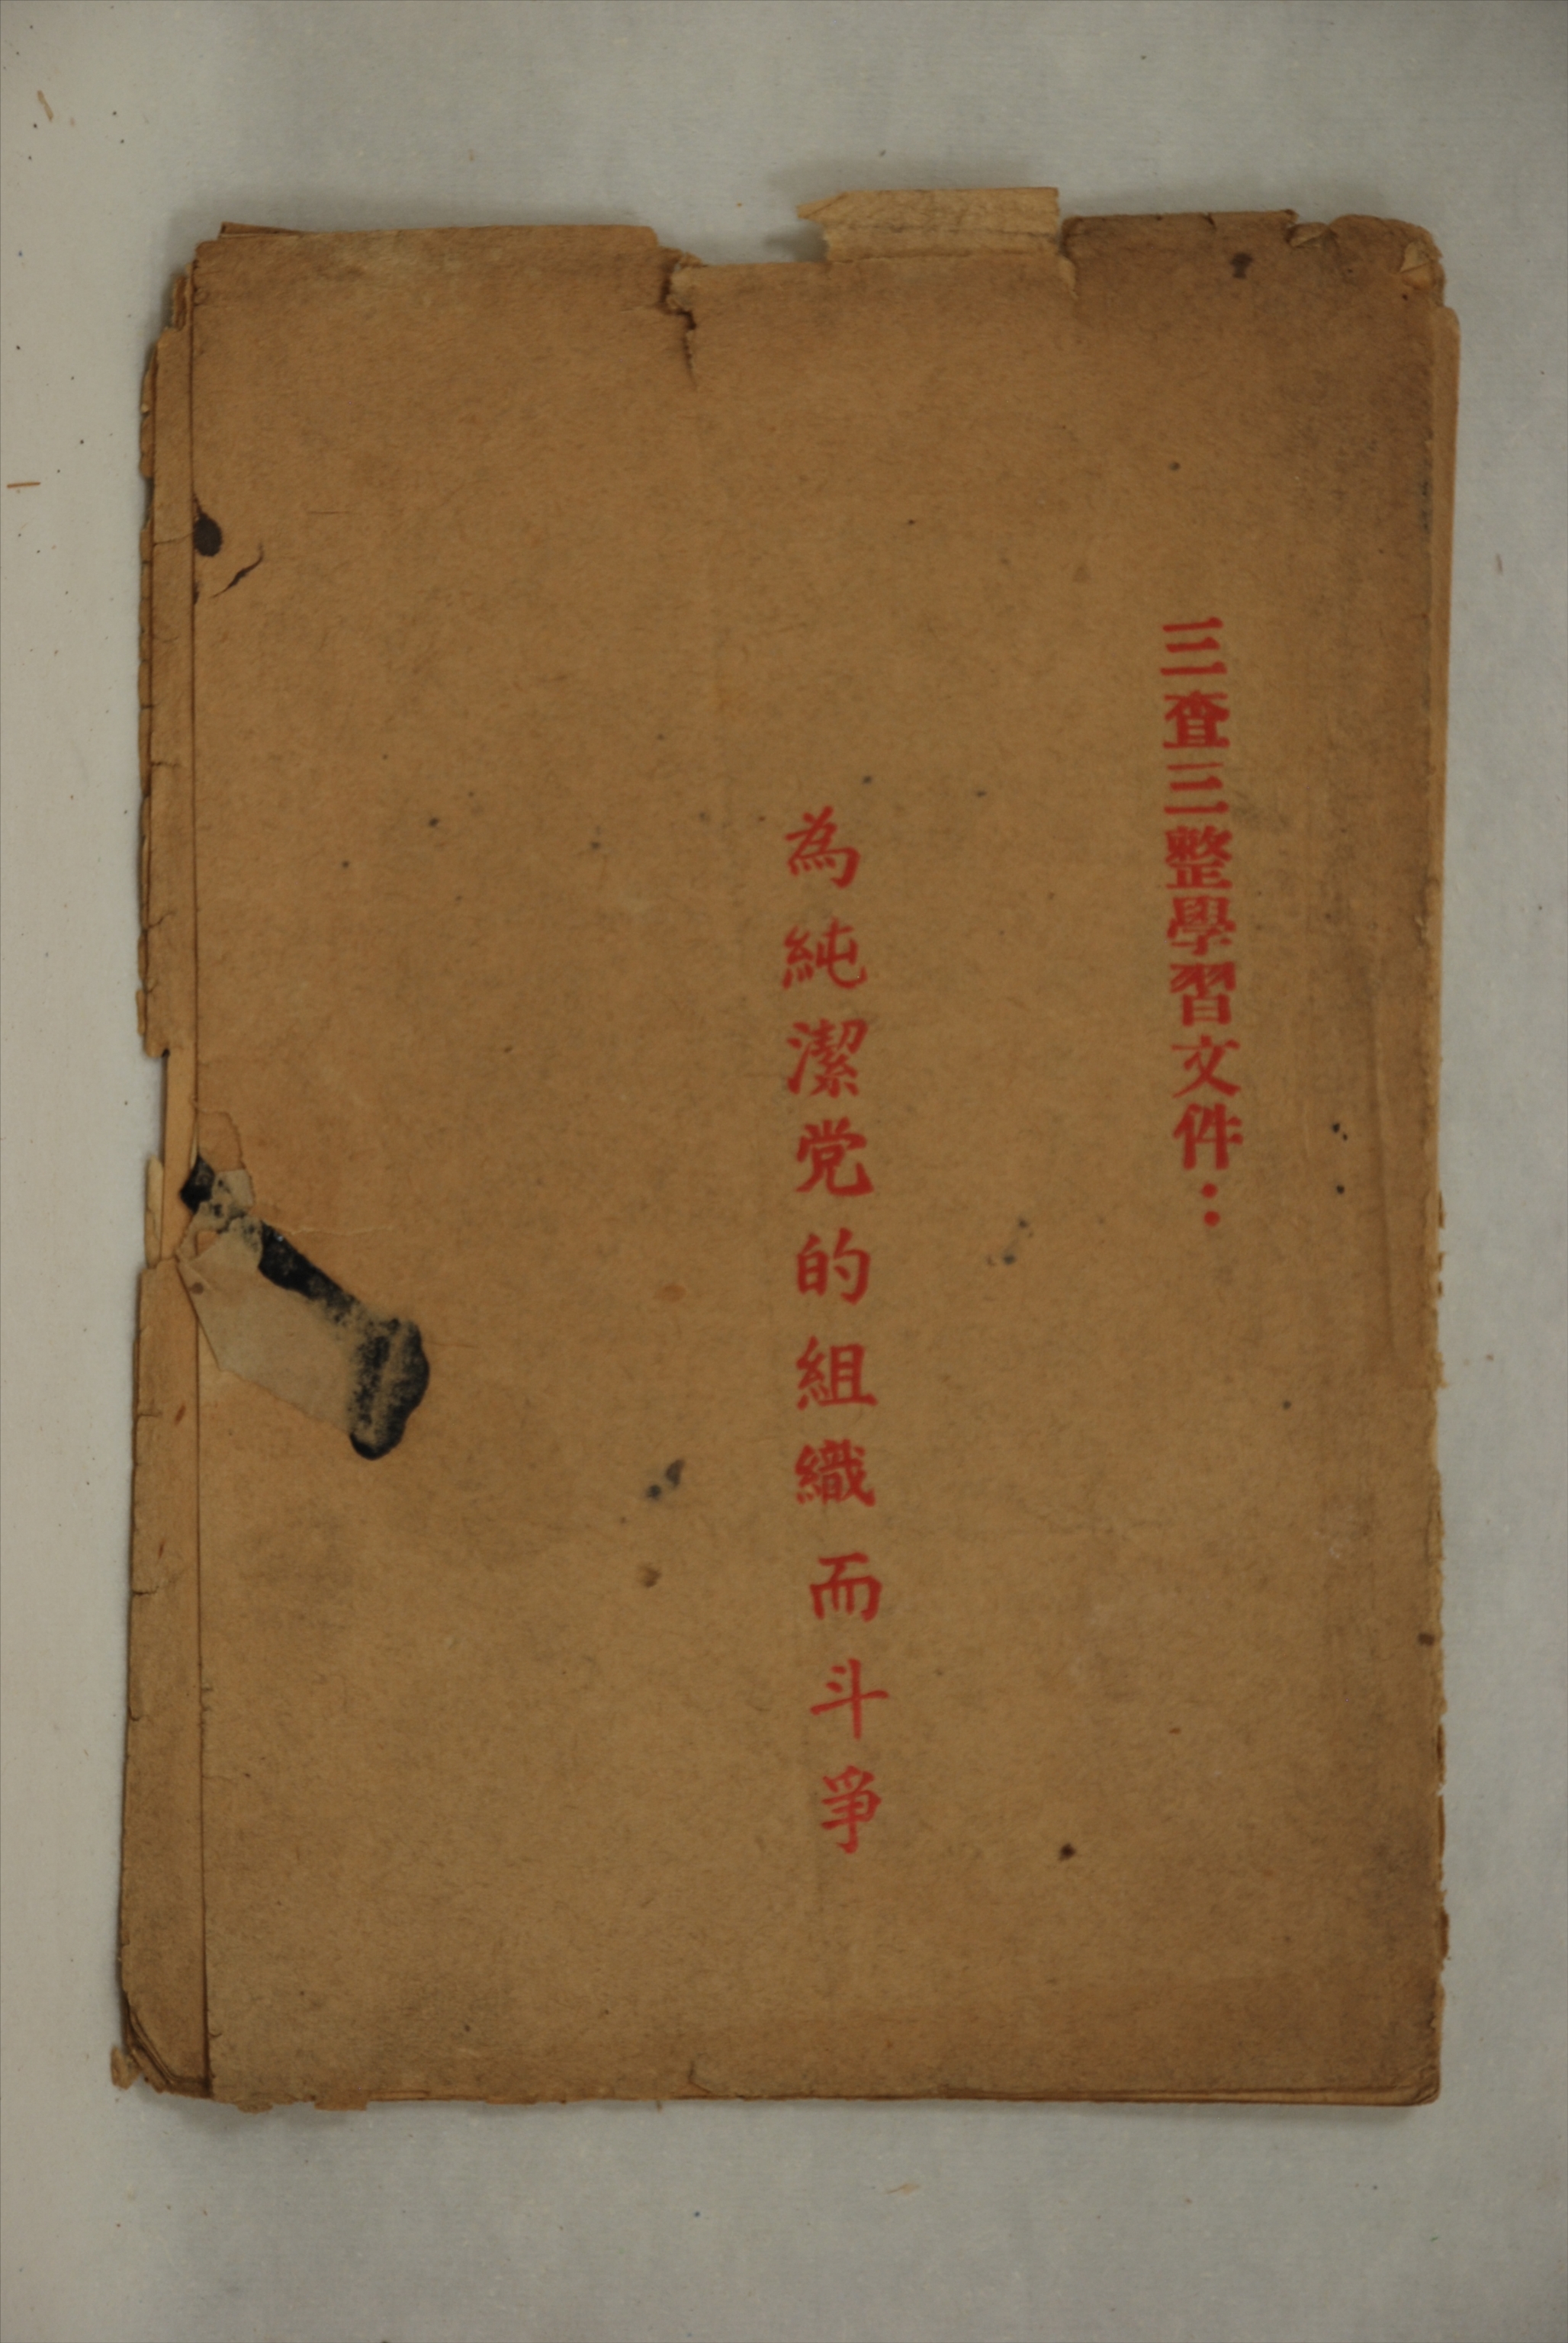 三查三整學習文件：
為純潔党的組織而斗爭